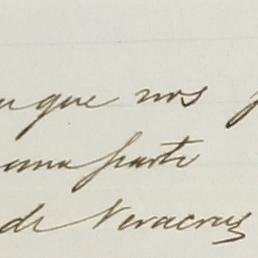 que nos
una parte
de Veracruz